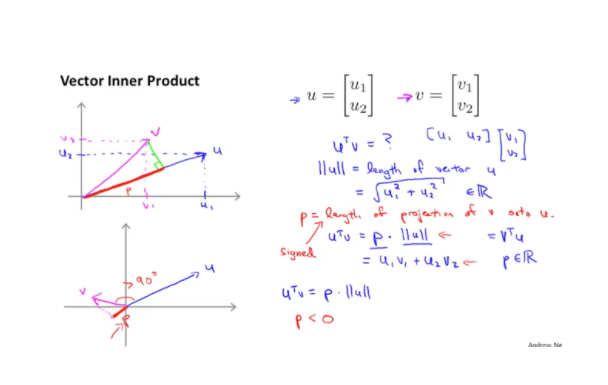 Vector Inner Product
→ u = [u₁ u₂] → v = [v₁ v₂]
uᵀv = ? [u₁ u₂] [v₁ v₂]
||u|| = length of vector u
= √u₁² + u₂² ∈ ℝ
p = length of projection of v onto u.
signed
uᵀv = p · ||u|| ← = vᵀu
= u₁v₁ + u₂v₂ ← p ∈ ℝ
uᵀv = p · ||u||
p < 0
v₂
u₂
v
u
p
v₁
u₁
90°
u
v
p
Andrew Ng